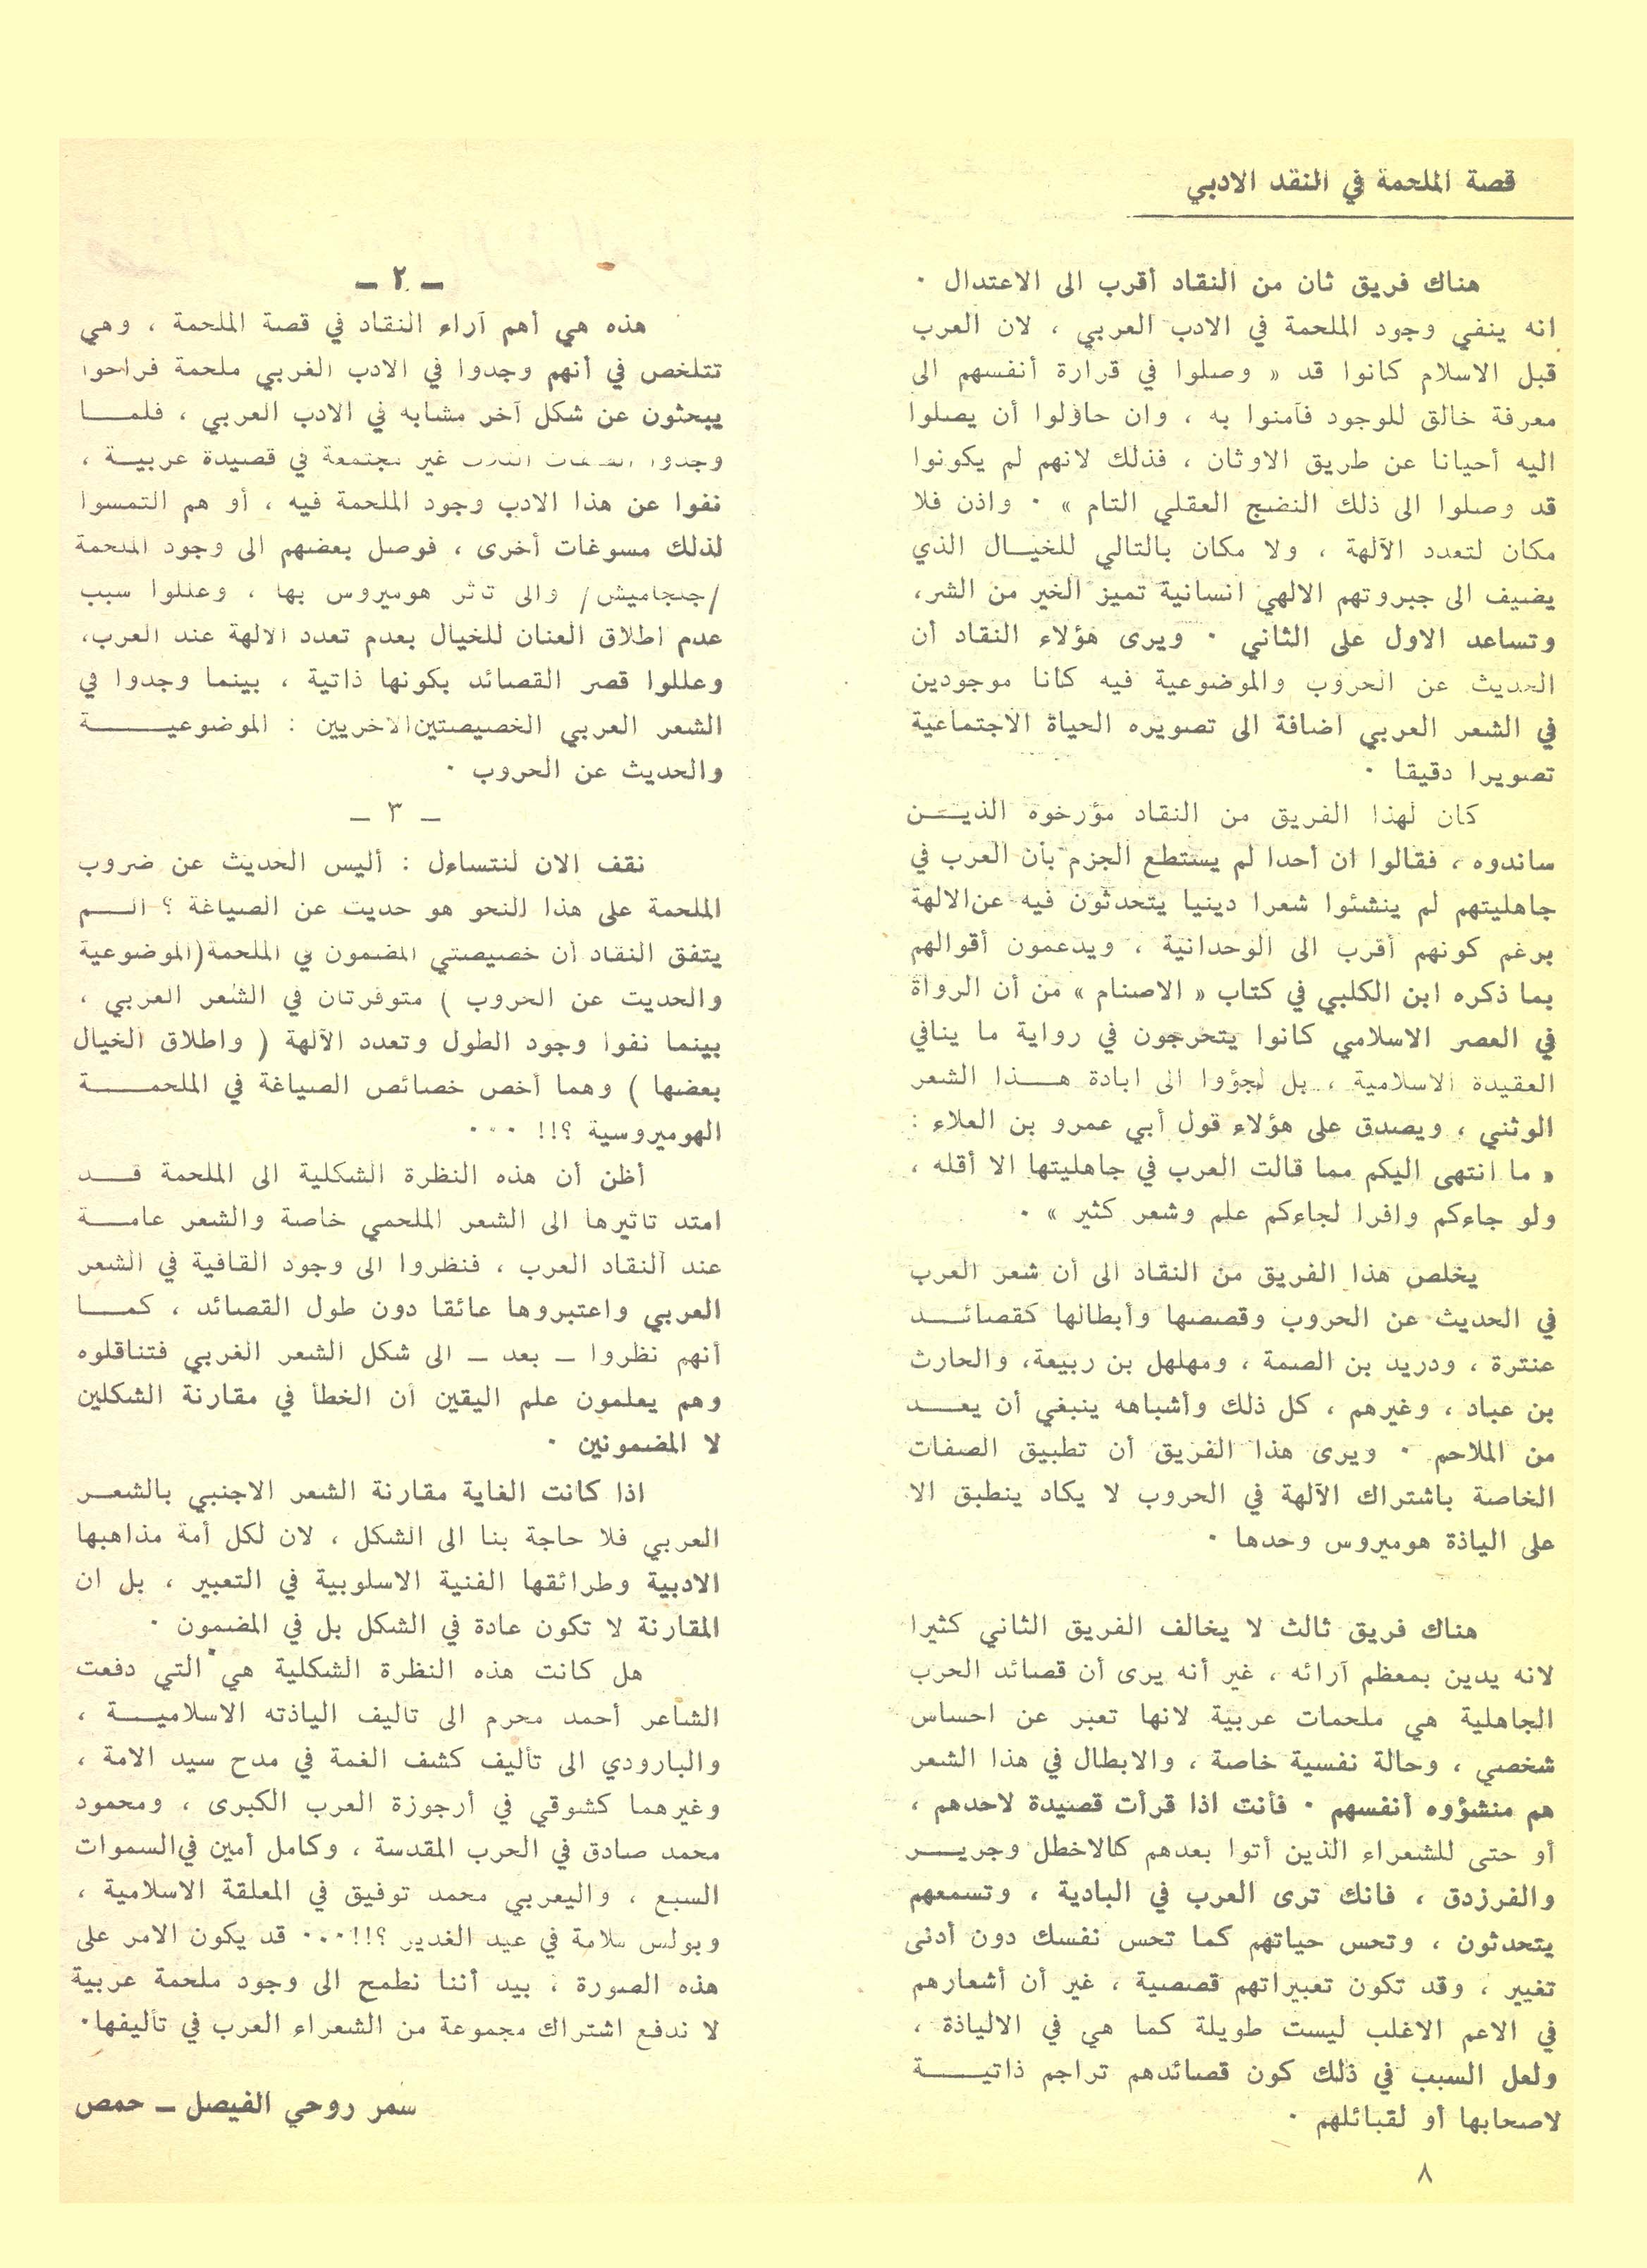 قصة الملحمة في النقد الادبي
هناك فريق ثان من النقاد أقرب الى الاعتدال ٠
انه ينفي وجود الملحمة في الادب العربي ، لان العرب
قبل الاسلام كانوا قد « وصلوا في قرارة أنفسهم الى
معرفة خالق للوجود فآمنوا به ، وان حاولوا أن يصلوا
اليه أحيانا عن طريق الاوثان ، فذلك لانهم لم يكونوا
قد وصلوا الى ذلك النضج العقلي التام » ٠ واذن فلا
مكان لتعدد الآلهة ، ولا مكان بالتالي للخيال الذي
يضيف الى جبروتهم الالهي انسانية تميز الخير من الشر،
وتساعد الاول على الثاني ٠ ويرى هؤلاء النقاد أن
الحديث عن الحروب والموضوعية فيه كانا موجودين
في الشعر العربي اضافة الى تصويره الحياة الاجتماعية
تصويرا دقيقا ٠
كان لهذا الفريق من النقاد مؤرخوه الذيـن
ساندوه ، فقالوا ان أحدا لم يستطع الجزم بأن العرب في
جاهليتهم لم ينشئوا شعرا دينيا يتحدثون فيه عن الالهة
برغم كونهم أقرب الى الوحدانية ، ويدعمون أقوالهم
بما ذكره ابن الكلبي في كتاب « الاصنام » من أن الرواة
في العصر الاسلامي كانوا يتحرجون في رواية ما ينافي
العقيدة الاسلامية ، بل لجؤوا الى ابادة هـذا الشعر
الوثني ، ويصدق على هؤلاء قول أبي عمرو بن العلاء :
« ما انتهى اليكم مما قالت العرب في جاهليتها الا أقله ،
ولو جاءكم وافرا لجاءكم علم وشعر كثير » ٠
يخلص هذا الفريق من النقاد الى أن شعر العرب
في الحديث عن الحروب وقصصها وأبطالها كقصائـد
عنترة ، ودريد بن الصمة ، ومهلهل بن ربيعة، والحارث
بن عباد ، وغيرهم ، كل ذلك وأشباهه ينبغي أن يعـد
من الملاحم ٠ ويرى هذا الفريق أن تطبيق الصفات
الخاصة باشتراك الآلهة في الحروب لا يكاد ينطبق الا
على الياذة هوميروس وحدها ٠
هناك فريق ثالث لا يخالف الفريق الثاني كثيرا
لانه يدين بمعظم آرائه ، غير أنه يرى أن قصائد الحرب
الجاهلية هي ملحمات عربية لانها تعبر عن احساس
شخصي ، وحالة نفسية خاصة ، والابطال في هذا الشعر
هم منشؤوه أنفسهم ٠ فأنت اذا قرأت قصيدة لاحدهم ،
أو حتى للشعراء الذين أتوا بعدهم كالاخطل وجريـر
والفرزدق ، فانك ترى العرب في البادية ، وتسمعهم
يتحدثون ، وتحس حياتهم كما تحس نفسك دون أدنى
تغيير ، وقد تكون تعبيراتهم قصصية ، غير أن أشعارهم
في الاعم الاغلب ليست طويلة كما هي في الالياذة ،
ولعل السبب في ذلك كون قصائدهم تراجم ذاتيـة
لاصحابها أو لقبائلهم ٠
٨
ـ ٢ ـ
هذه هي أهم آراء النقاد في قصة الملحمة ، وهي
تتلخص في أنهم وجدوا في الادب الغربي ملحمة فراحوا
يبحثون عن شكل آخر مشابه في الادب العربي ، فلمـا
وجدوا غير مجتمعة في قصيدة عربيـة ،
نفوا عن هذا الادب وجود الملحمة فيه ، أو هم التمسوا
لذلك مسوغات أخرى ، فوصل بعضهم الى وجود الملحمة
/جلجاميش/ والى تأثر هوميروس بها ، وعللوا سبب
عدم اطلاق العنان للخيال بعدم تعدد الالهة عند العرب،
وعللوا قصر القصائد بكونها ذاتية ، بينما وجدوا في
الشعر العربي الخصيصتين الاخريين : الموضوعيـة
والحديث عن الحروب ٠
ـ ٣ ـ
نقف الان لنتساءل : أليس الحديث عن ضروب
الملحمة على هذا النحو هو حديث عن الصياغة ؟ الـم
يتفق النقاد أن خصيصتي المضمون في الملحمة (الموضوعية
والحديث عن الحروب ) متوفرتان في الشعر العربي ،
بينما نفوا وجود الطول وتعدد الآلهة ( واطلاق الخيال
بعضها ) وهما أخص خصائص الصياغة في الملحمـة
الهوميروسية ؟!! ٠٠٠
أظن أن هذه النظرة الشكلية الى الملحمة قـد
امتد تاثيرها الى الشعر الملحمي خاصة والشعر عامـة
عند النقاد العرب ، فنظروا الى وجود القافية في الشعر
العربي واعتبروها عائقا دون طول القصائد ، كمـا
أنهم نظروا ـ بعد ـ الى شكل الشعر الغربي فتناقلوه
وهم يعلمون علم اليقين أن الخطأ في مقارنة الشكلين
لا المضمونين ٠
اذا كانت الغاية مقارنة الشعر الاجنبي بالشعـر
العربي فلا حاجة بنا الى الشكل ، لان لكل أمة مذاهبها
الادبية وطرائقها الفنية الاسلوبية في التعبير ، بل ان
المقارنة لا تكون عادة في الشكل بل في المضمون ٠
هل كانت هذه النظرة الشكلية هي التي دفعت
الشاعر أحمد محرم الى تاليف الياذته الاسلاميـة ،
والبارودي الى تأليف كشف الغمة في مدح سيد الامة ،
وغيرهما كشوقي في أرجوزة العرب الكبرى ، ومحمود
محمد صادق في الحرب المقدسة ، وكامل أمين في السموات
السبع ، واليعربي محمد توفيق في المعلقة الاسلامية ،
وبولس سلامة في عيد الغدير ؟!!٠٠٠ قد يكون الامر على
هذه الصورة ، بيد أننا نطمح الى وجود ملحمة عربية
لا ندفع اشتراك مجموعة من الشعراء العرب في تأليفها٠
سمر روحي الفيصل ـ حمص